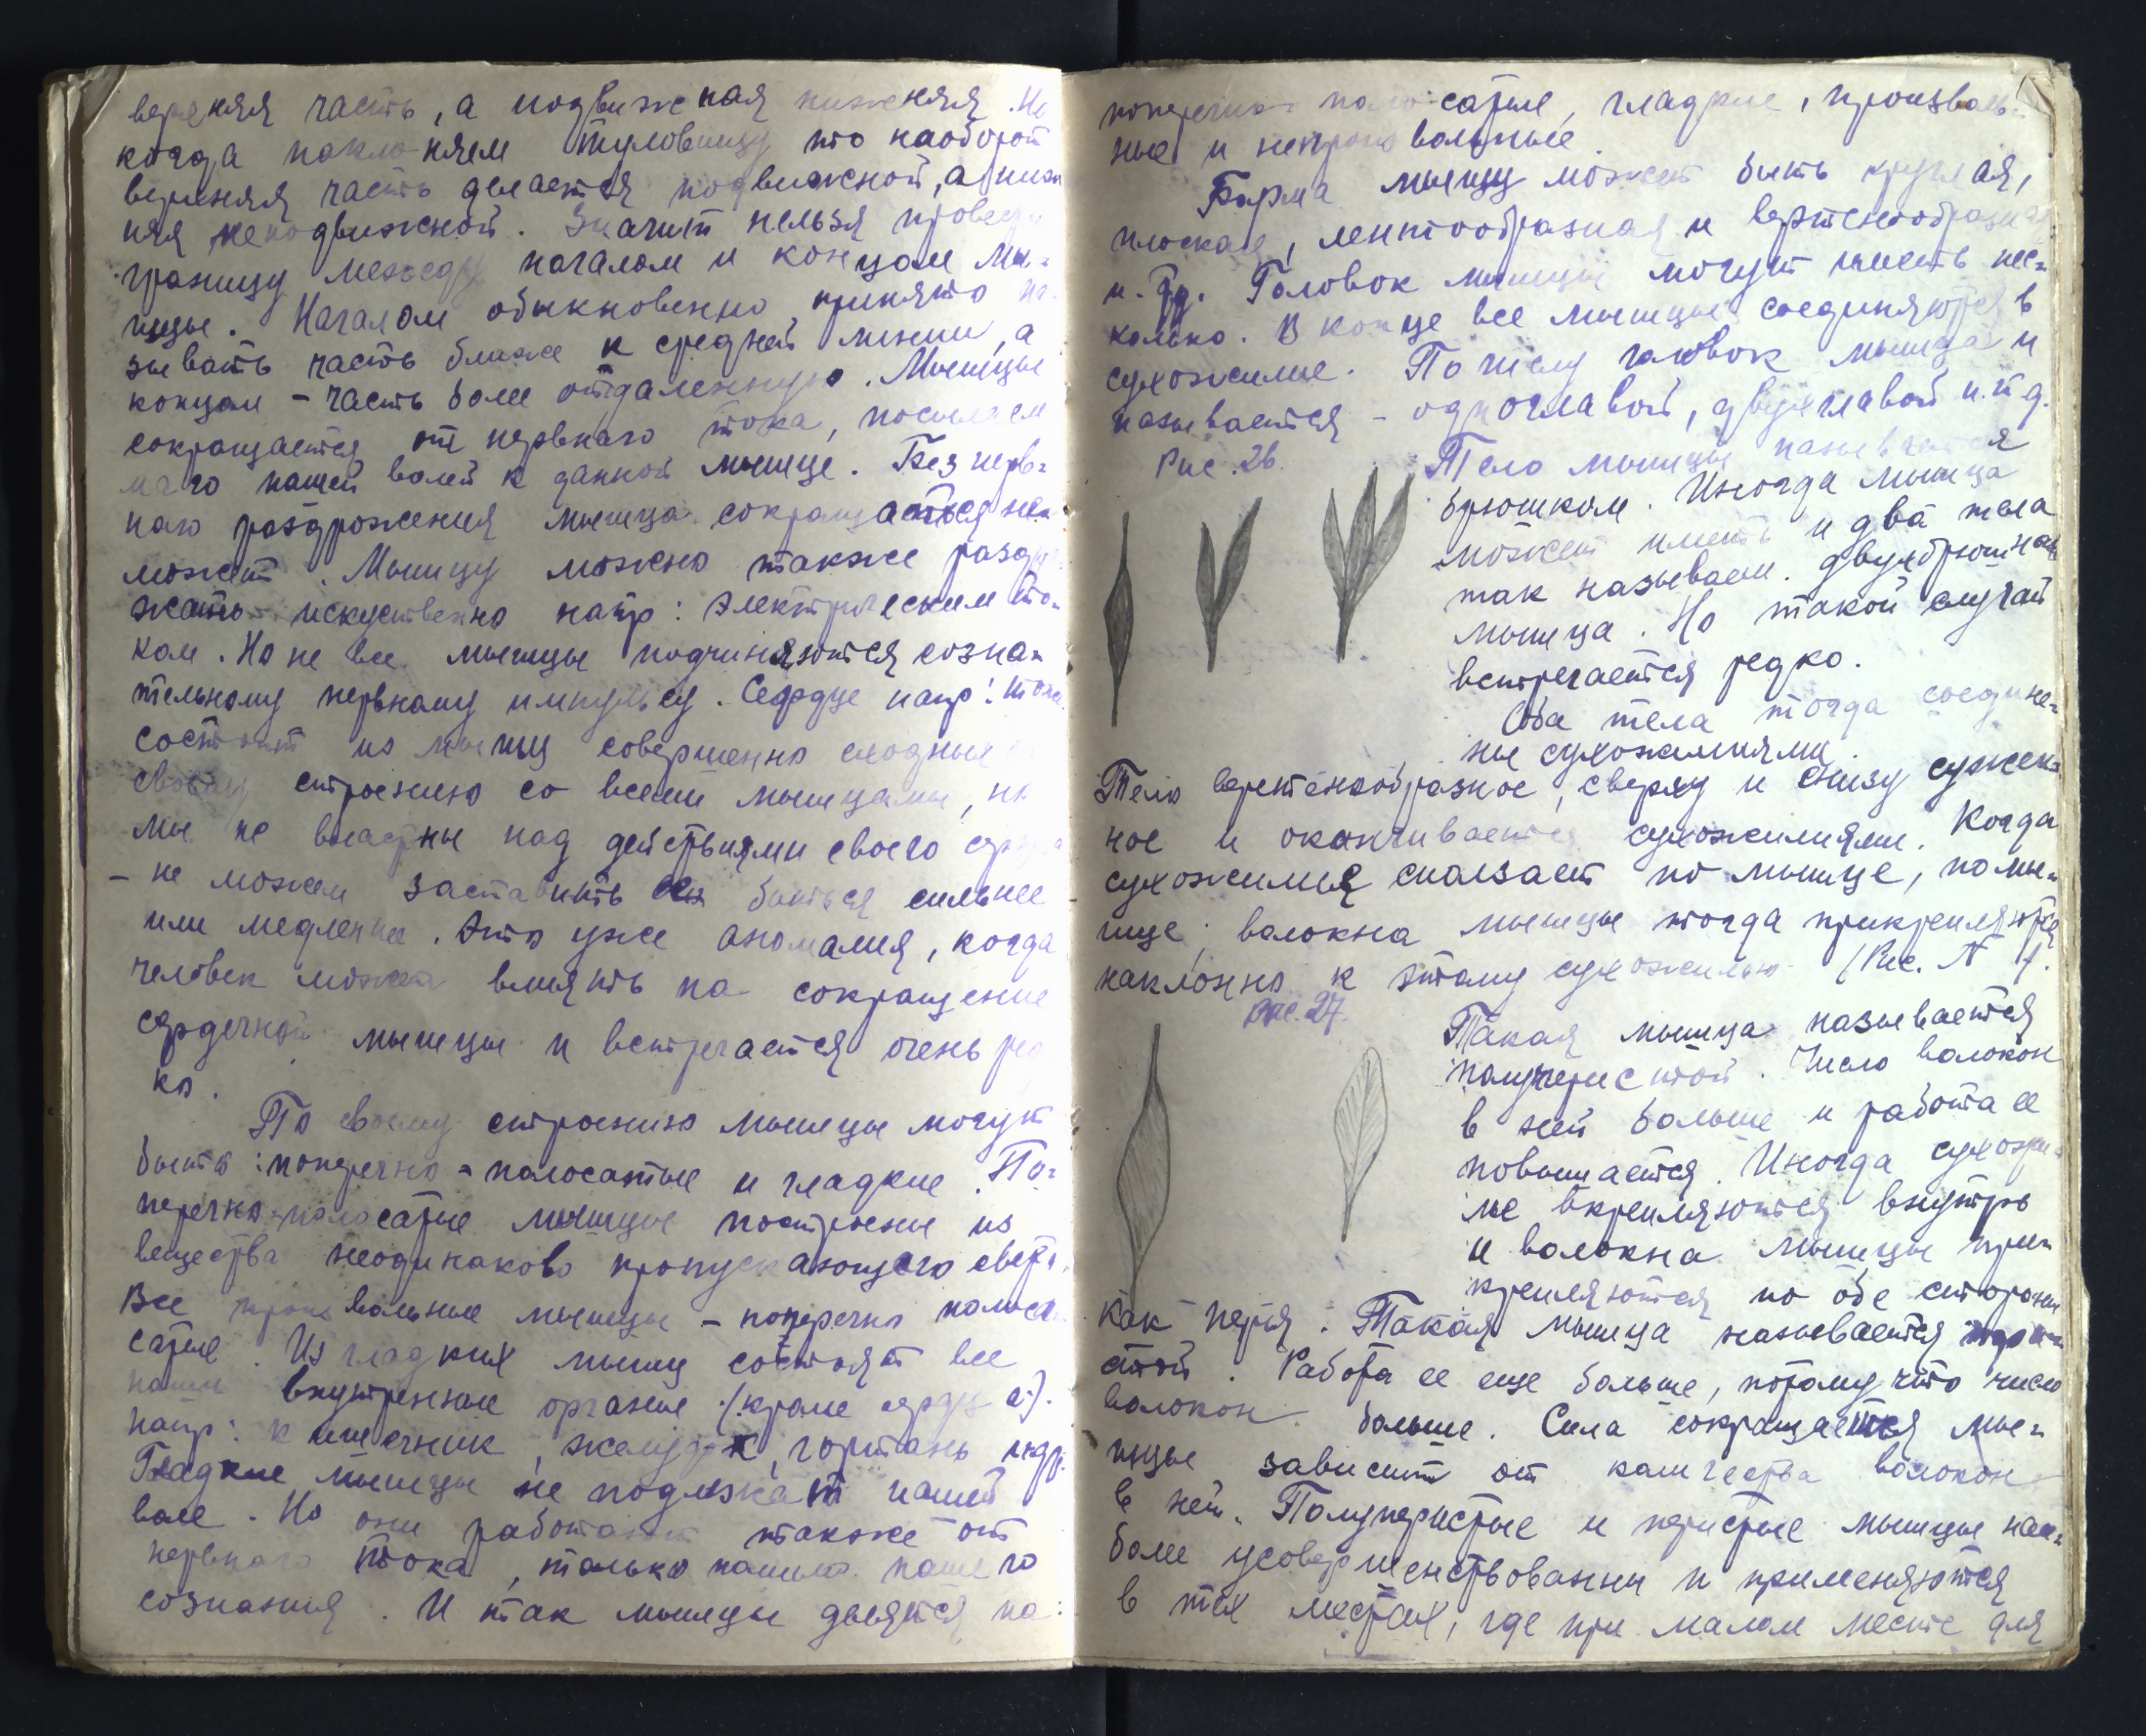 верхняя часть, а подвижная нижняя. Но
когда наклоняем туловищу то наоборот
верхняя часть делается подвижной, а ниж
няя неподвижной. Значит нельзя провести
границу между началом и концом мы-
шцы. Началом обыкновенно принято на-
зывать часть ближе к средней линии, а
концом - часть более отдаленную. Мышцы
сокращается от нервнаго тока, посылаем
маго нашей волей к данной мышце. Без нерв-
наго раздрожения мышца сокращаться не-
может. Мышцу можно также раздра
жать искуственно напр: электрическим то-
ком. Но не все мышцы подчиняются созна-
тельному нервному импульсу. Сердце напр: тоже
состоит из мышц совершенно сходные
своему строению со всеми мышцами, но
мы не властны над действиями своего сердца
- не можем заставить его биться сильнее
или медленнее. Это уже аномалия, когда
человек может влиять на сокращение
сердечной мышцы и встречается очень ред
ко.
По своему строению мышцы могут
быть: поперечно-полосатые и гладкие. По-
перечно-полосатые мышцы построены из
вещества неодинаково пропускающего свет.
Все произвольные мышцы - поперечно полоса
сатые. Из гладких мышц состоят все
наши внутренние органы (кроме сердца).
напр: кишечник, желудок, гортань и др.
Гладкие мышцы не подлежат нашей
воле. Но они работают также от
нервнаго тока, только помимо нашего
сознания. И так мышцы делятся на:
поперечно-полосатые, гладкие, произволь-
ные и непроизвольные.
Форма мышцы может быть круглая,
плоская, лентообразная и вертенообразная
и. др. Головок мышцы могут иметь нес-
колько. В конце все мышцы соединяются в
сухожилие. По числу головок мышца и
называется - одноглавой, двухглавой и.т.д.
Рис. 26.
Тело мышцы называется
брюшком. Иногда мышца
может иметь и два тела
так называем. двухбрюшная
мышца. Но такой случай
встречается редко.
Оба тела тогда соедине-
ны сухожилиями.
Тело веретенообразное, сверху и снизу сужен-
ное и оканчивается сухожилиями. Когда
сухожилия сползает по мышце, по мы-
шце; волокна мышцы тогда прикрепляются
наклонно к этому сухожилью (Рис. N ).
Рис. 27.
Такая мышца называется
полуперистой. Число волокон
в ней больше и работа ее
повышается. Иногда сухожи-
лие вкрепляются внутрь
и волокна мышцы при-
крепляются по обе стороны
как перья. Такая мышца называется пери-
стой. Работа ее еще больше, потому что число
волокон больше. Сила сокращается мы-
шцы зависит от количества волокон
в ней. Полуперистые и перистые мышцы наи-
более усовершенствованны и применяются
в тех местах, где при малом месте для